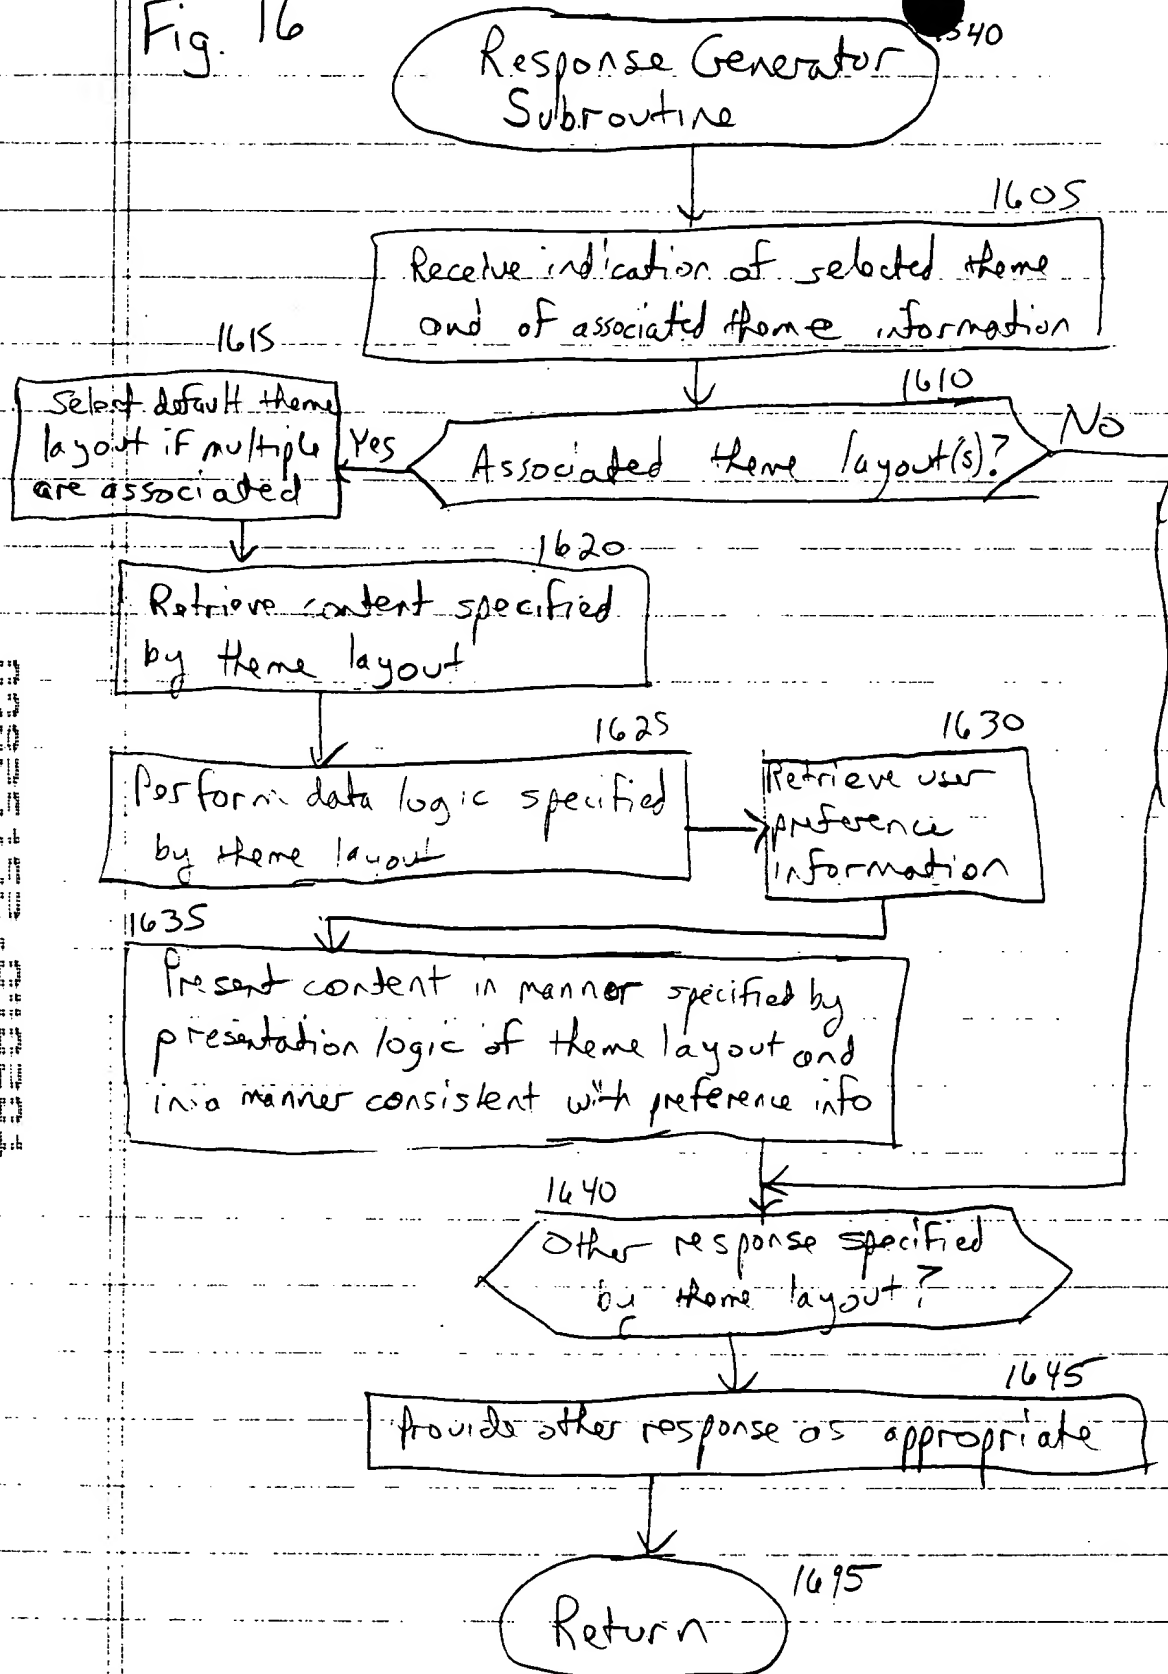 Fig. 16
340
Response Generator
Subroutine
1605
Receive indication of selected theme
and of associated theme information
1610
Associated theme layout(s)?
Yes
No
1615
Select default theme
layout if multiple
are associated
1620
Retrieve content specified
by theme layout
1625
Perform data logic specified
by theme layout
1630
Retrieve user
preference
information
1635
Present content in manner specified by
presentation logic of theme layout and
in a manner consistent with preference info
1640
Other response specified
by theme layout?
1645
Provide other response as appropriate
1695
Return